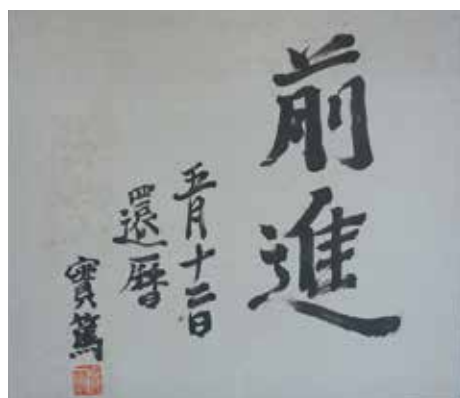 前進
五月十二日
還暦
實篤